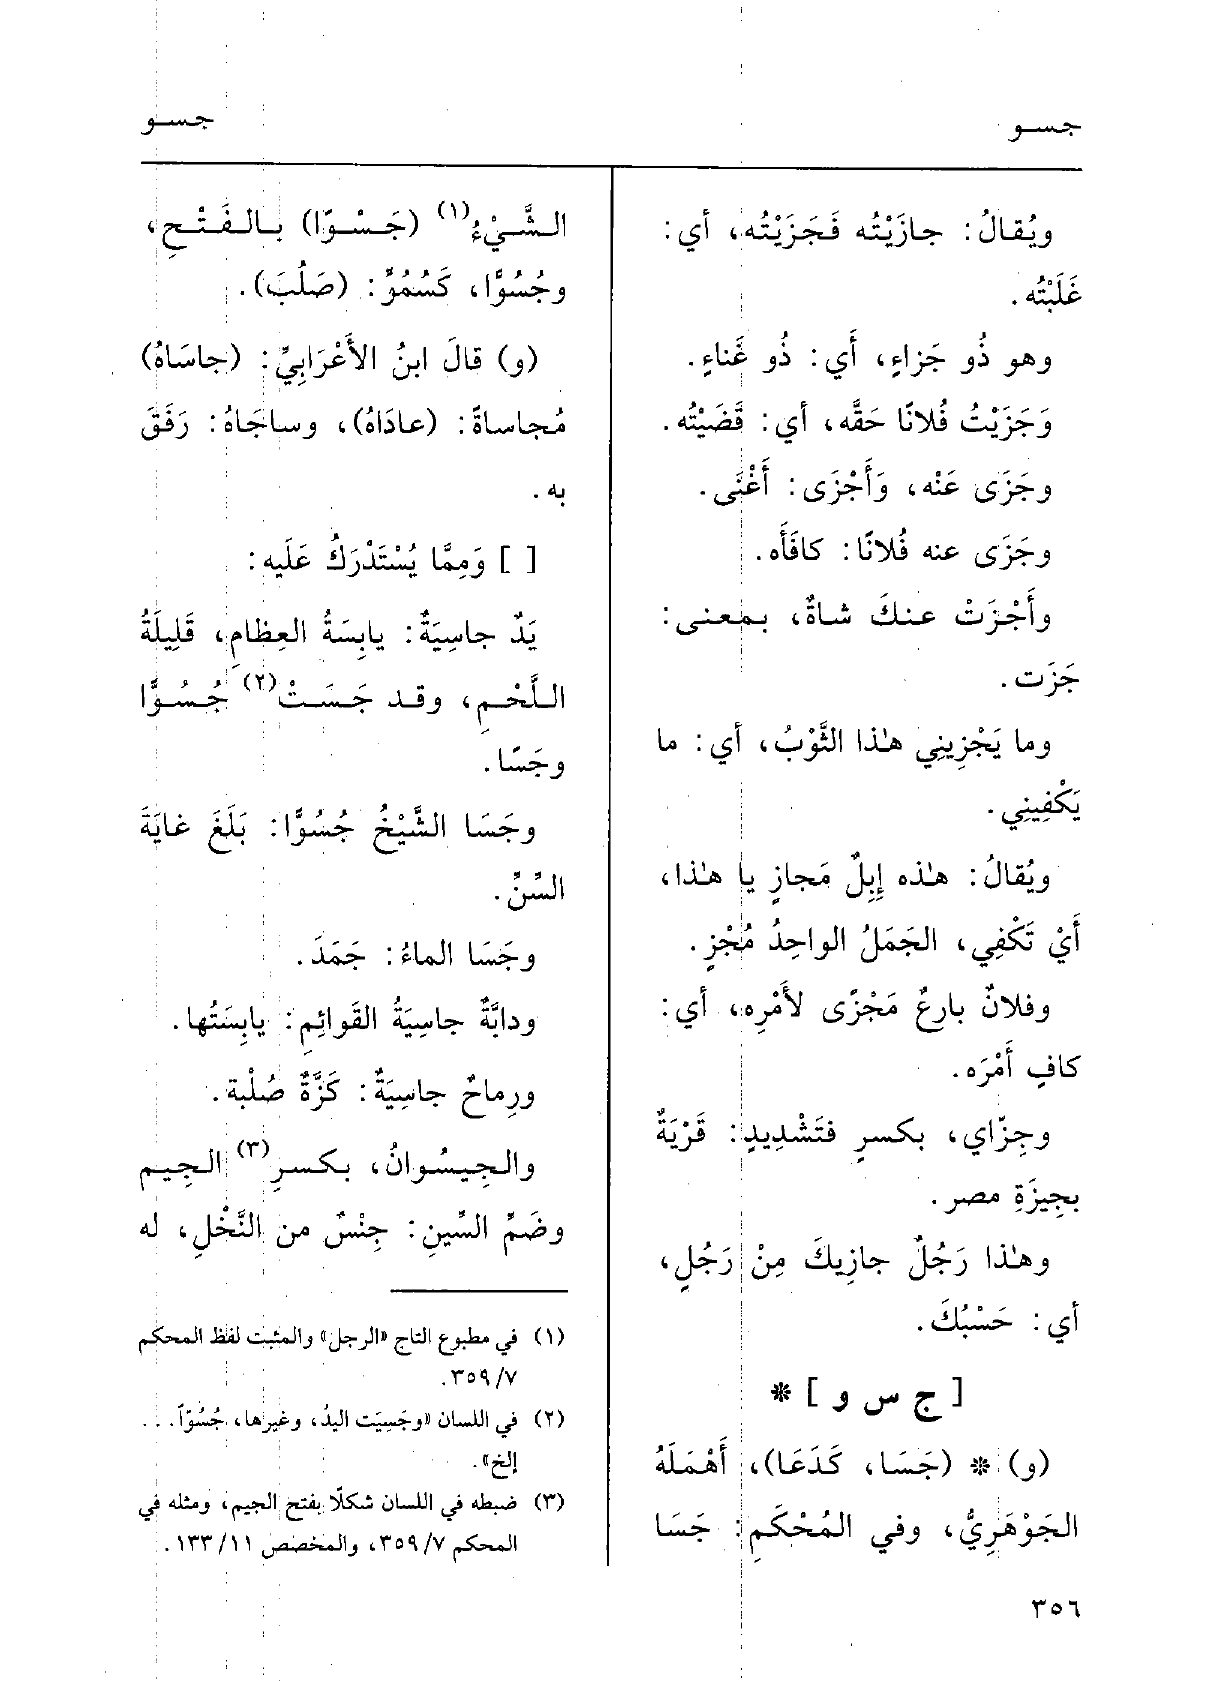 جسو
جسو
ويُقالُ: جازَيْتُه فَجَزَيْتُه، أي:
غَلَبْتُه.
وهو ذُو جَزاءٍ، أي: ذُو غَناءٍ.
وَجَزَيْتُ فُلانًا حَقَّه، أي: قَضَيْتُه.
وجَزَى عَنْه، وَأَجْزَى: أَغْنَى.
وجَزَى عنه فُلانًا: كافَأَه.
وأَجْزَتْ عنكَ شاةٌ، بمعنى:
جَزَت.
وما يَجْزِينِي هٰذا الثَّوْبُ، أي: ما
يَكْفِينِي.
ويُقالُ: هٰذه إِبِلٌ مَجازٍ يا هٰذا،
أَيْ تَكْفِي، الجَمَلُ الواحِدُ مُجْزٍ.
وفلانٌ بارعٌ مَجْزًى لأَمْرِه، أي:
كافٍ أَمْرَه.
وجِزّاي، بكسرٍ فتَشْدِيدٍ: قَرْيَةٌ
بجِيزَةِ مصر.
وهٰذا رَجُلٌ جازِيكَ مِنْ رَجُلٍ،
أي: حَسْبُكَ.
[ ج س و ] *
(و) * (جَسَا، كَدَعَا)، أَهْمَلَهُ
الجَوْهَرِيُّ، وفي المُحْكَمِ: جَسَا
الشَّيْءُ(١) (جَسْوًا) بالفَتْحِ،
وجُسُوًّا، كَسُمُوٍّ: (صَلُبَ).
(و) قالَ ابنُ الأَعْرَابِيِّ: (جاسَاهُ)
مُجاساةً: (عادَاهُ)، وساجَاهُ: رَفَقَ
به.
[ ] وَمِمَّا يُسْتَدْرَكُ عَلَيه:
يَدٌ جاسِيَةٌ: يابِسَةُ العِظامِ، قَلِيلَةُ
اللَّحْمِ، وقد جَسَتْ(٢) جُسُوًّا
وجَسًا.
وجَسَا الشَّيْخُ جُسُوًّا: بَلَغَ غايَةَ
السِّنِّ.
وجَسَا الماءُ: جَمَدَ.
ودابَّةٌ جاسِيَةُ القَوائِمِ: يابِسَتُها.
ورِماحٌ جاسِيَةٌ: كَزَّةٌ صُلْبة.
والجِيسُوانُ، بكسرِ(٣) الجِيم
وضَمِّ السِّينِ: جِنْسٌ من النَّخْلِ، له
(١) في مطبوع التاج «الرجل» والمثبت لفظ المحكم
٣٥٩/٧.
(٢) في اللسان «وجَسِيَت اليدُ، وغيرها، جُسُوّاً. . .
إلخ».
(٣) ضبطه في اللسان شكلًا بفتح الجيم، ومثله في
المحكم ٣٥٩/٧، والمخصص ١٣٣/١١.
٣٥٦